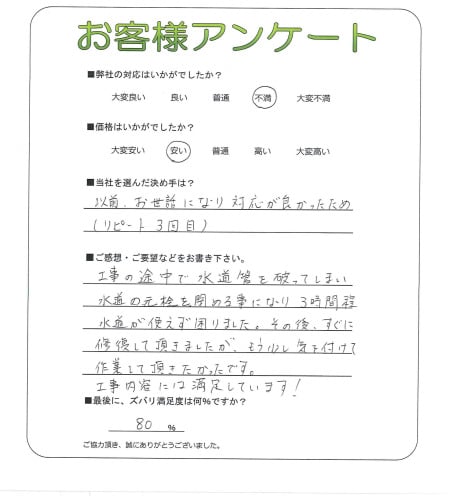 お客様アンケート
■弊社の対応はいかがでしたか？
大変良い 良い 普通 不満 大変不満
■価格はいかがでしたか？
大変安い 安い 普通 高い 大変高い
■当社を選んだ決め手は？
以前、お世話になり対応が良かったため
(リピート3回目)
■ご感想・ご要望などをお書き下さい。
工事の途中で水道管を破ってしまい
水道の元栓を閉める事になり3時間程
水道が使えず困りました。その後、すぐに
修復して頂きましたが、もう少し気を付けて
作業して頂きたかったです。
工事内容には満足しています！
■最後に、ズバリ満足度は何%ですか？
80 %
ご協力頂き、誠にありがとうございました。